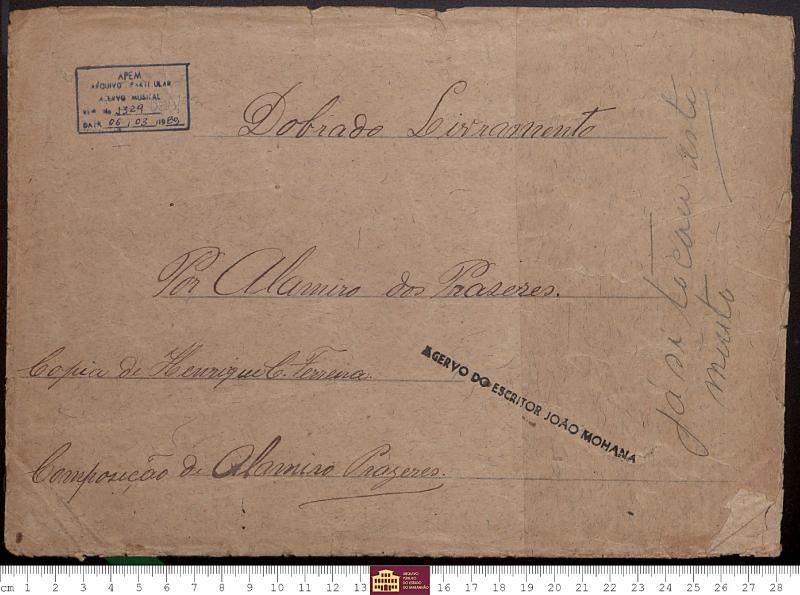 APEM
ARQUIVO PARTICULAR
ACERVO MUSICAL
REG No 1329
DATA 06 / 03 / 1989
Dobrado Livramento
Por Alamiro dos Prazeres.
Copia de Henrique C. Ferreira.
Composição de Alamiro Prazeres.
ACERVO DO ESCRITOR JOÃO MOHANA
Já si tocou este
muito
cm 1 2 3 4 5 6 7 8 9 10 11 12 13 16 17 18 19 20 21 22 23 24 25 26 27 28
ARQUIVO
PÚBLICO
DO ESTADO
DO MARANHÃO